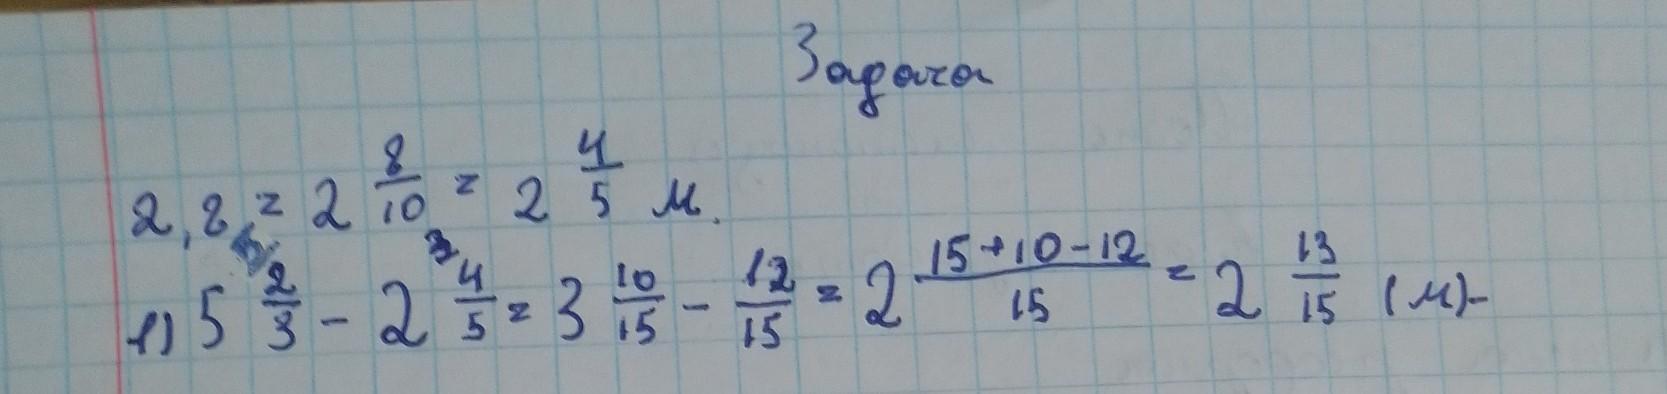 Задача
2,8 = 2 8/10 = 2 4/5 м.
1) 5 2/3 - 2 4/5 = 3 10/15 - 12/15 = 2 (15+10-12)/15 = 2 13/15 (м)-